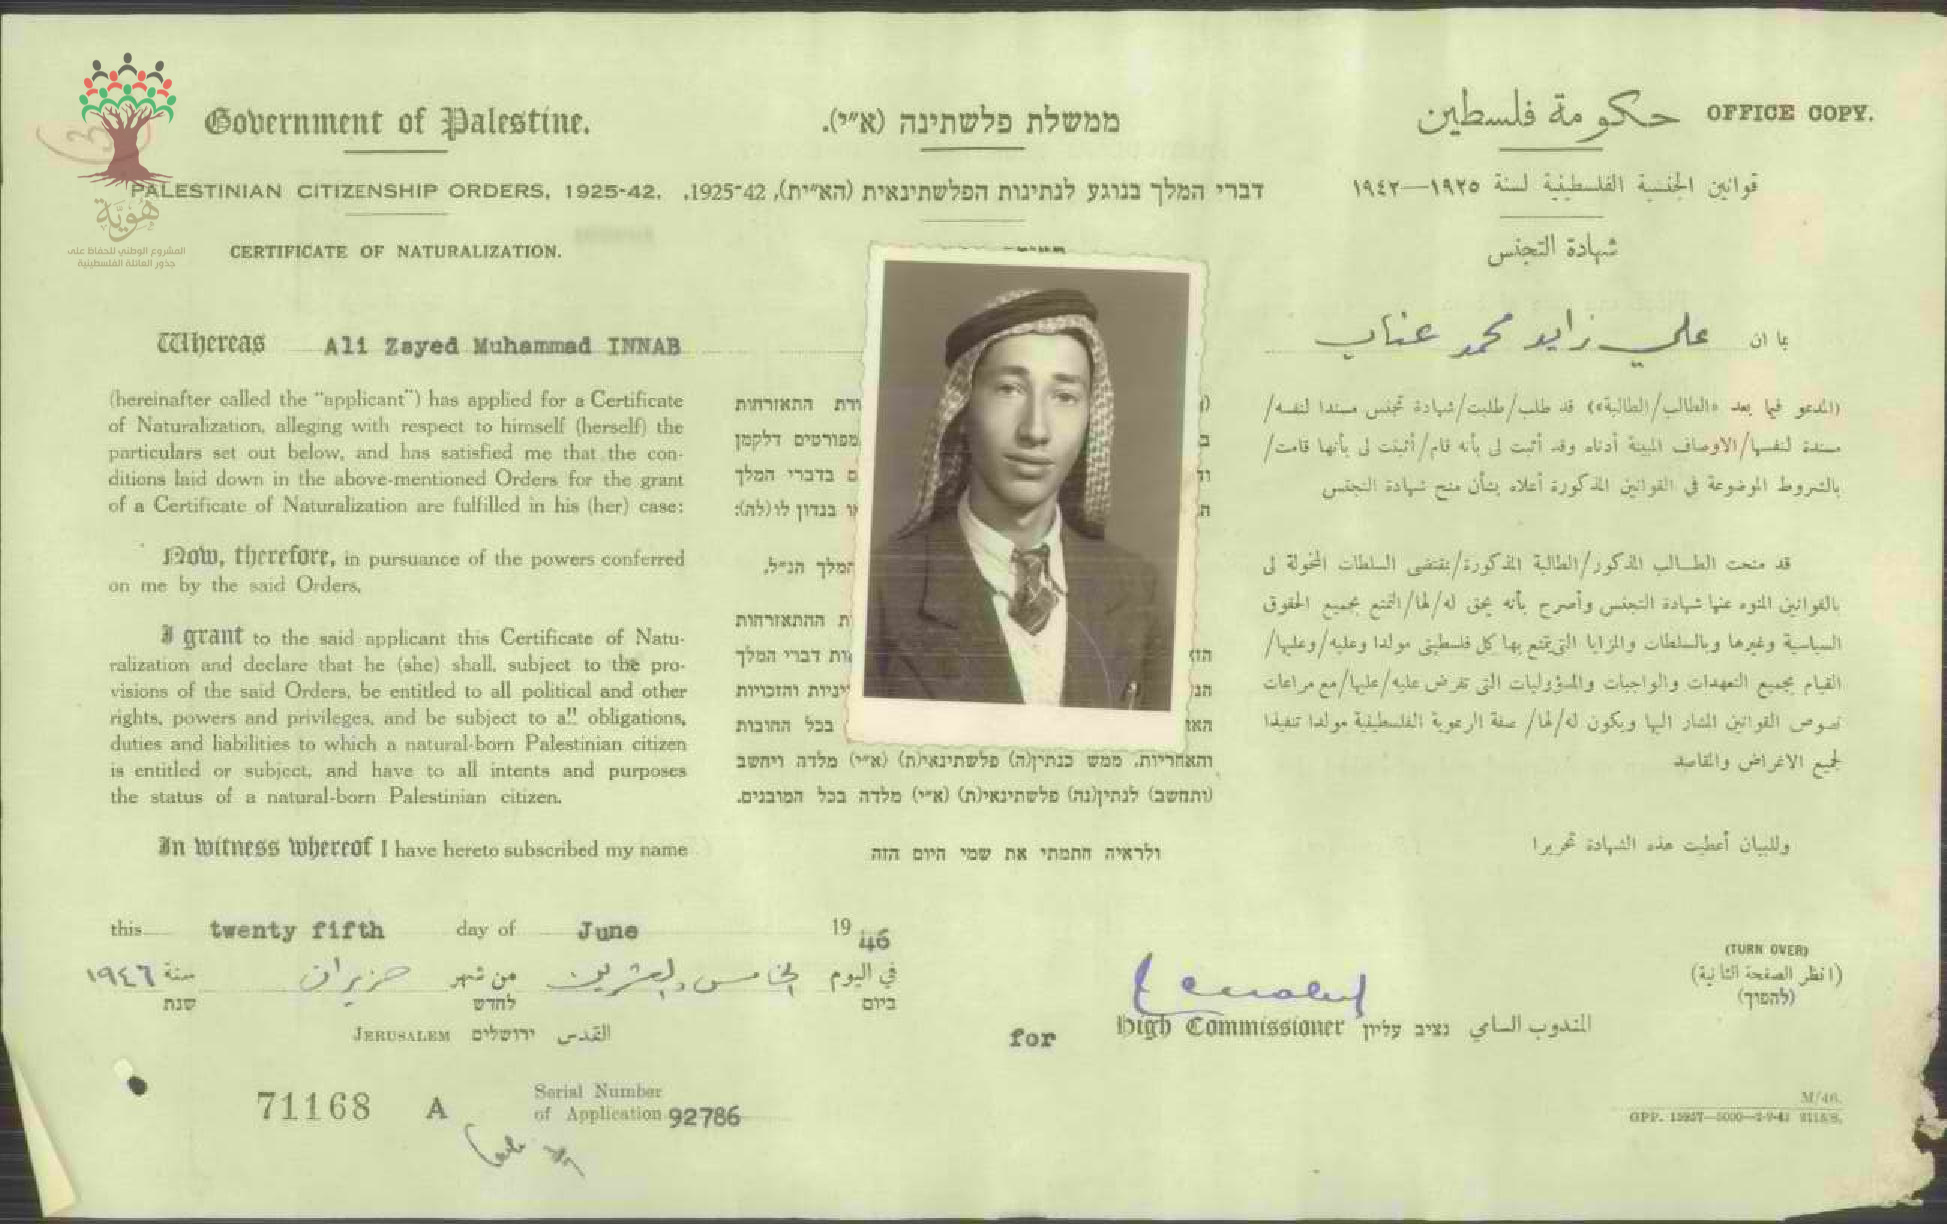 Government of Palestine.
PALESTINIAN CITIZENSHIP ORDERS, 1925-42.
CERTIFICATE OF NATURALIZATION.
هُوِيَّة
المشروع الوطني للحفاظ على
جذور العائلة الفلسطينية
Whereas Ali Zayed Muhammad INNAB
(hereinafter called the "applicant") has applied for a Certificate
of Naturalization, alleging with respect to himself (herself) the
particulars set out below, and has satisfied me that the con-
ditions laid down in the above-mentioned Orders for the grant
of a Certificate of Naturalization are fulfilled in his (her) case:
Now, therefore, in pursuance of the powers conferred
on me by the said Orders,
I grant to the said applicant this Certificate of Natu-
ralization and declare that he (she) shall, subject to the pro-
visions of the said Orders, be entitled to all political and other
rights, powers and privileges, and be subject to all obligations,
duties and liabilities to which a natural-born Palestinian citizen
is entitled or subject, and have to all intents and purposes
the status of a natural-born Palestinian citizen.
In witness whereof I have hereto subscribed my name
ממשלת פלשתינה (א״י).
דברי המלך בנוגע לנתינות הפלשתינאית (הא״ית), 1925-42.
ורת התאזרחות
מפורטים דלקמן
ם בדברי המלך
ו בנדון לו (לה):
המלך הנ״ל.
ת ההתאזרחות
הזא ות דברי המלך
הנ יניות והזכויות
האז בכל החובות
והאחריות, ממש כנתין(ה) פלשתינאי(ת) (א״י) מלדה ויחשב
(ותחשב) לנתין(נה) פלשתינאי(ת) (א״י) מלדה בכל המובנים.
ולראיה חתמתי את שמי היום הזה
حكومة فلسطين OFFICE COPY.
قوانين الجنسية الفلسطينية لسنة ١٩٢٥—١٩٤٢
شهادة التجنس
بما ان علي زايد محمد عناب
(المدعو فيما بعد «الطالب/الطالبة») قد طلب/طلبت/شهادة تجنس مسندا لنفسه/
مسندة لنفسها/الاوصاف المبينة أدناه وقد أثبت لي بأنه قام/أثبتت لي بأنها قامت/
بالشروط الموضوعة في القوانين المذكورة أعلاه بشأن منح شهادة التجنس
قد منحت الطالب المذكور/الطالبة المذكورة/بمقتضى السلطات المخولة لي
بالقوانين المنوه عنها شهادة التجنس وأصرح بأنه يحق له/لها/التمتع بجميع الحقوق
السياسية وغيرها وبالسلطات والمزايا التي يتمتع بها كل فلسطيني مولدا وعليه/وعليها/
القيام بجميع التعهدات والواجبات والمسؤوليات التي تفرض عليه/عليها/مع مراعات
نصوص القوانين المشار اليها ويكون له/لها/ صفة الرعوية الفلسطينية مولدا تنفيذا
لجميع الاغراض والمقاصد
وللبيان أعطيت هذه الشهادة تحريرا
this twenty fifth day of June 1946
في اليوم الخامس والعشرين من شهر حزيران سنة ١٩٤٦
ביום לחדש שנת
JERUSALEM ירושלים القدس
for High Commissioner נציב עליון المندوب السامي
(TURN OVER)
(انظر الصفحة الثانية)
(להפוך)
71168 A
Serial Number
of Application 92786
M/46.